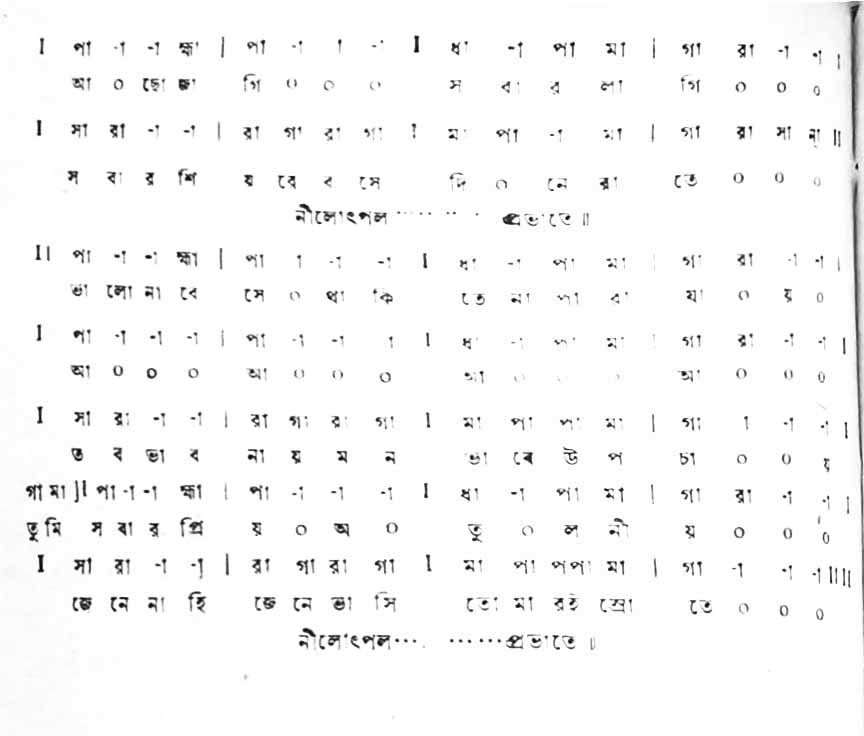 I পা -া -া হ্মা | পা -া া -া I ধা -া পা মা | গা রা -া -া |
আ ০ ছো জা গি ০ ০ ০ স বা র লা গি ০ ০ ০
I সা রা -া -া | রা গা রা গা I মা পা -া মা | গা রা সা না ||
স বা র শি য় রে ব সে দি ০ নে রা তে ০ ০ ০
নীলোৎপল ······ প্রভাতে॥
II পা -া -া হ্মা | পা া -া -া I ধা -া পা মা | গা রা -া -া |
ভা লো না বে সে ০ থা কি তে না পা রা যা ০ য় ০
I পা -া -া -া | পা -া -া া I ধা -া পা মা | গা রা -া -া |
আ ০ ০ ০ আ ০ ০ ০ আ ০ ০ ০ আ ০ ০ ০
I সা রা -া -া | রা গা রা গা I মা পা পা মা | গা া -া -া |
ত ব ভা ব না য় ম ন ভা রে উ প চা ০ ০ য়
গা মা ]I পা -া -া হ্মা | পা -া -া -া I ধা -া পা মা | গা রা -া -া |
তু মি স বা র প্রি য় ০ অ ০ তু ০ ল নী য় ০ ০ ০
I সা রা -া -া | রা গা রা গা I মা পা পপা মা | গা -া -া -া IIII
জে নে না হি জে নে ভা সি তো মা রই স্রো তে ০ ০ ০
নীলোৎপল···. ······প্রভাতে॥